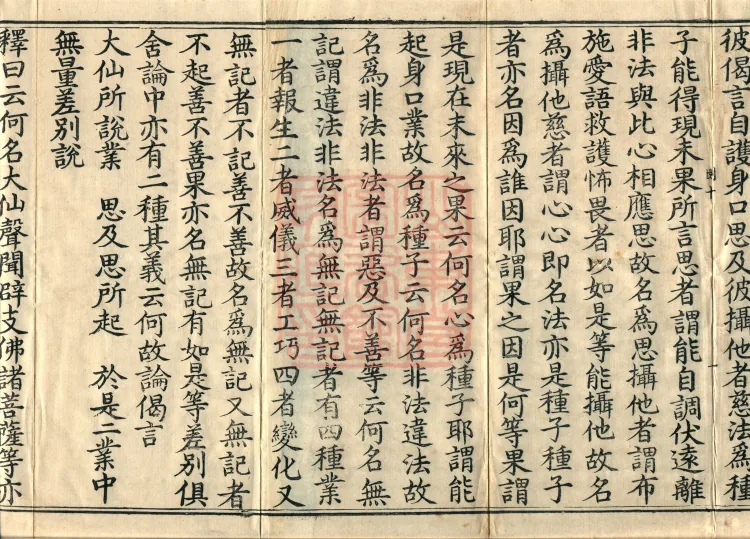 彼偈言自護身口思及彼攝他者慈法爲種
子能得現未果所言思者謂能自調伏遠離
非法與此心相應思故名爲思攝他者謂布
施愛語救護怖畏者以如是等能攝他故名
爲攝他慈者謂心心即名法亦是種子種子
者亦名因爲誰因耶謂果之因是何等果謂
是現在未來之果云何名心爲種子耶謂能
起身口業故名爲種子云何名非法違法故
名爲非法非法者謂惡及不善等云何名無
記謂違法非法名爲無記無記者有四種業
一者報生二者威儀三者工巧四者變化又
無記者不記善不善故名爲無記又無記者
不起善不善果亦名無記有如是等差別俱
舍論中亦有二種其義云何故論偈言
大仙所說業　思及思所起　於是二業中
無量差別說
釋曰云何名大仙聲聞辟支佛諸菩薩等亦